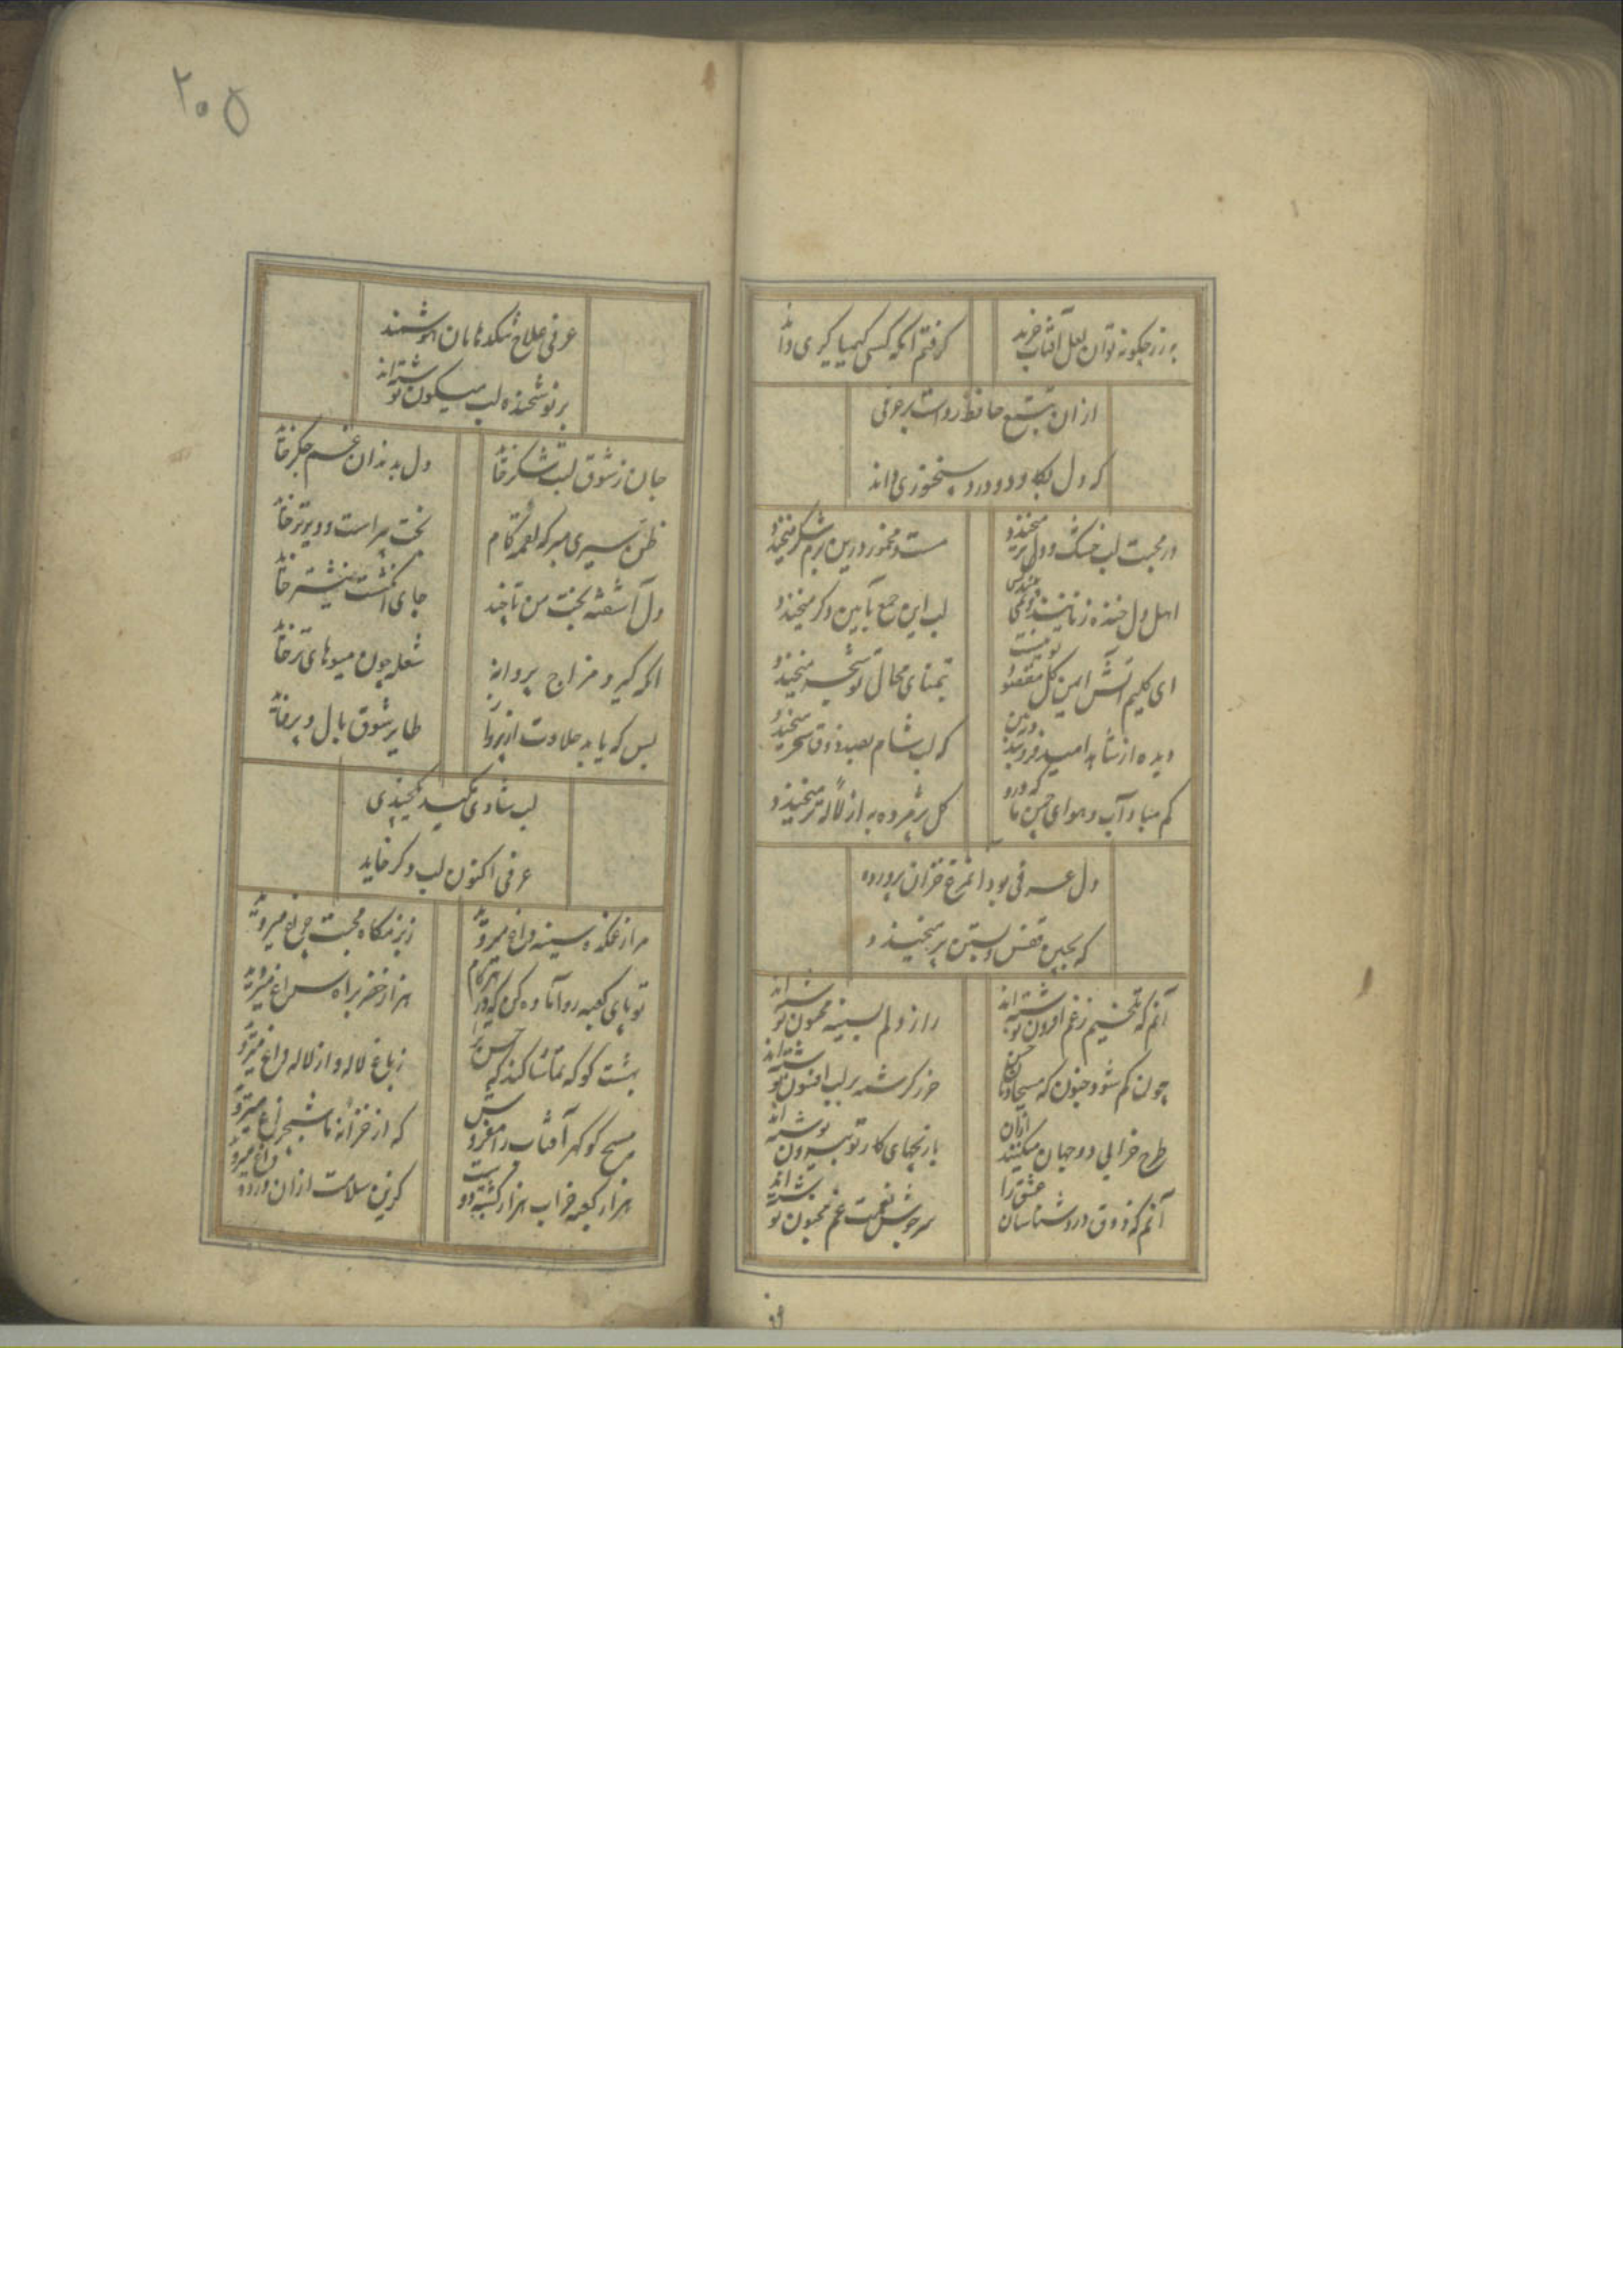 به زر چگونه توان لعل آفتاب خرید
گرفتم آنکه کسی کیمیا گری داند
از ان تتبع حافظ رواست بر عرفی
که دل بکاود و درد سخنوری داند
در محبت لب خشک و دل تر میخندد
مست و مخمور درین بزم شکر میخندد
اهل دل خنده زنانند ولی
لب این جمع بآیین دگر میخندد
ای کلیم آتش ایمن گل مقصد تو نیست
بتمنای محال تو شجر میخندد
دیده از شاهد امید فرو بند درین
که لب شام بصد ذوق سحر میخندد
کم مباد آب و هوای چمن ما که درو
گل پژمرده به از لاله تر میخندد
دل عرفی بود آن مرغ خزان پرورده
که بچین قفس و بستن پر میخندد
آنم که تلخیم ز غم افزون نوشته اند
راز دلم بسینه محزون نوشته اند
چون کم شود جنون که مسیحا دمان
حرز کرشمه بر لب افسون نوشته اند
طرح خرابی دو جهان میکنند ازان
تاریخهای کار تو بیرون نوشته اند
آنم که ذوق درد شناسان عشق را
سرجوش نعمت غم مجنون نوشته اند
۲۰۵
عرفی علاج تنکدهانان
بر نوشخنده لب میگون نوشته اند
جان ز شوق لبت شکر خاید
دل بدندان غم جگر خاید
ظن سیری مبر که لقمه کام
بخت پیر است و دیرتر خاید
دل آشفته بخت من تا چند
جای انگشت نیشتر خاید
اگر گیرد مزاج پروانه
شعله چون میوهای تر خاید
بس که یابد حلاوت از پرواز
طایر شوق بال و پر خاید
لب شادی مکید میخندی
عرفی اکنون لب دگر خاید
مرا ز غمکده سینه داغ میروید
ز بزمگاه محبت چراغ میروید
تو پای کعبه رو آماده کن که در هر گام
هزار خضر براه سراغ میروید
بهشت کو که تماشا کند که حسن ترا
ز باغ لاله و از لاله داغ میروید
مسیح کو گهر آفتاب را مفروش
که از خزانه ما شبچراغ میروید
هزار کعبه خراب هزار
گزین سلامت ازان